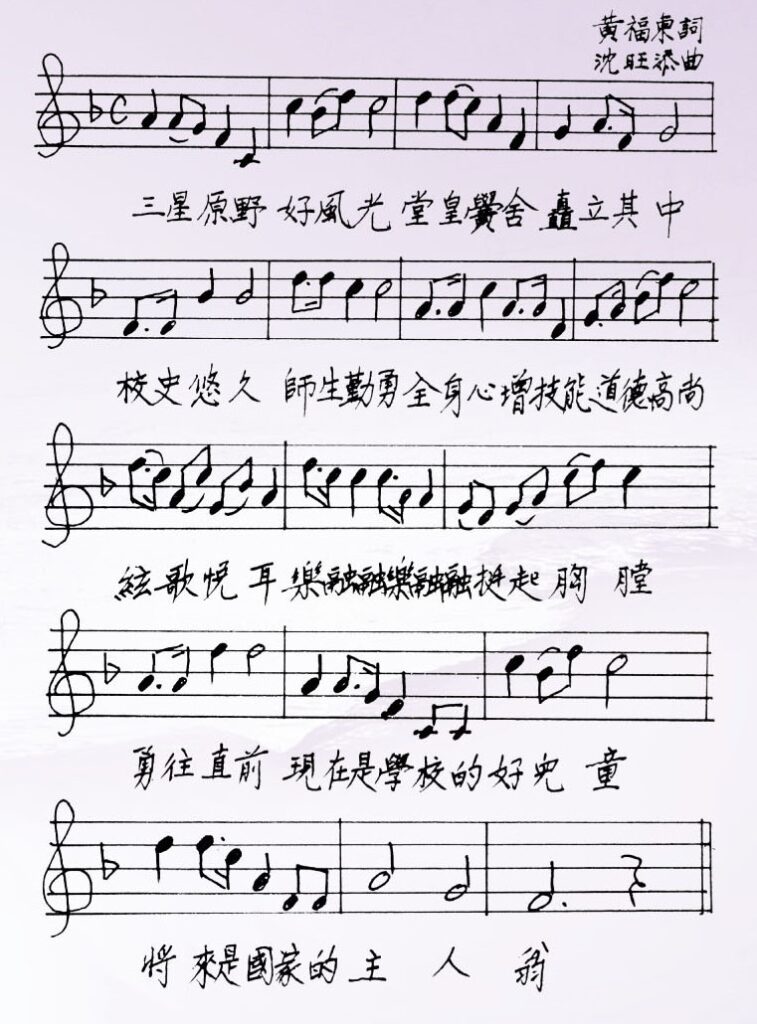 黃福東詞
沈旺添曲
三星原野好風光堂皇黌舍矗立其中
校史悠久師生勤勇全身心增技能道德高尚
絃歌悅耳樂融融樂融融挺起胸膛
勇往直前現在是學校的好兒童
將來是國家的主人翁